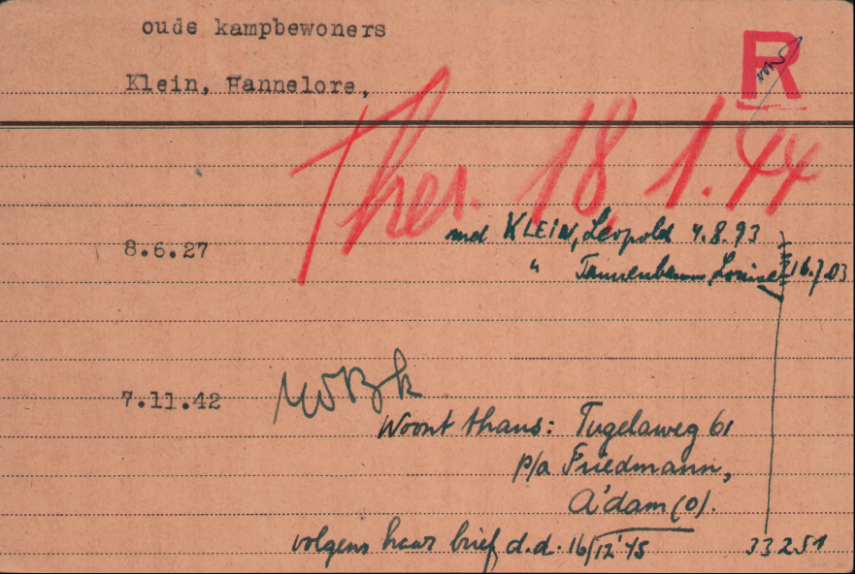 oude kampbewoners
R
Klein, Hannelore,
Ther. 18.1.44
md KLEIN, Leopold 4.8.93
8.6.27
" Tannenbaum, Louise 16.7.03
7.11.42
Woont thans: Tugelaweg 61
p/a Friedmann,
A'dam (O).
volgens haar brief d.d. 16/12'45
33251